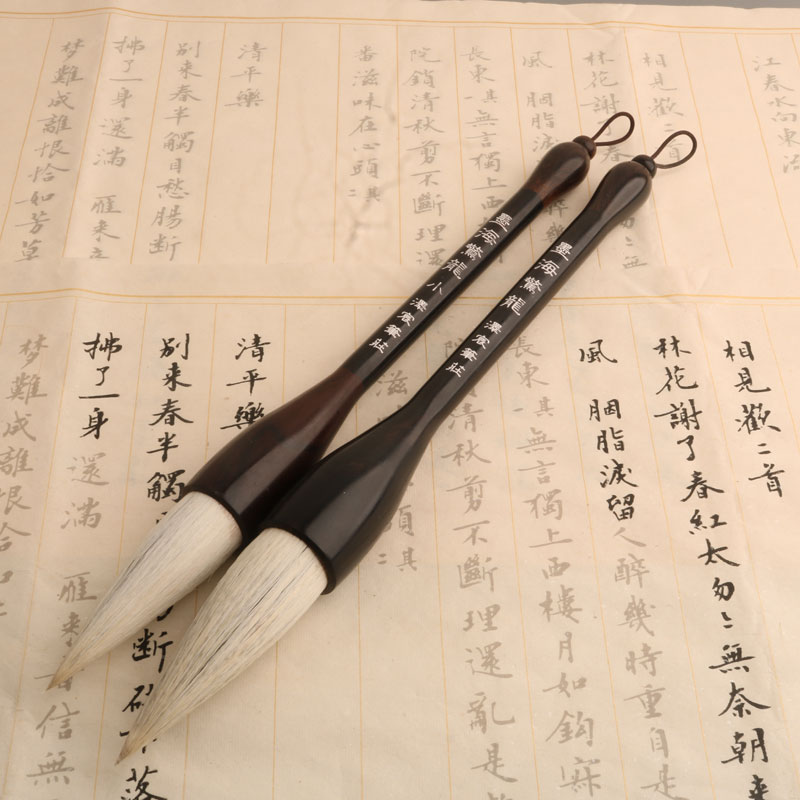 江春水向東流
相見歡二首
林花謝了春
風 胭脂淚
長東 其 無言獨上西
院鎖清秋剪不斷理還
番滋味在心頭 其二
清平樂
別來春半觸目愁腸斷
拂了一身還滿 雁來
夢難成離恨恰如芳草
墨海驚龍 澤宸筆莊
墨海驚龍小 澤宸筆莊
相見歡二首
林花謝了春紅太匆〻無奈朝來
風 胭脂淚留人醉幾時重自是
長東 其無言獨上西樓月如鈎寂
清秋剪不斷理還亂是
滋 頭 其二
清平樂
別來春半觸 斷砌 落
拂了一身還滿 雁來音信無
夢難成離恨恰如